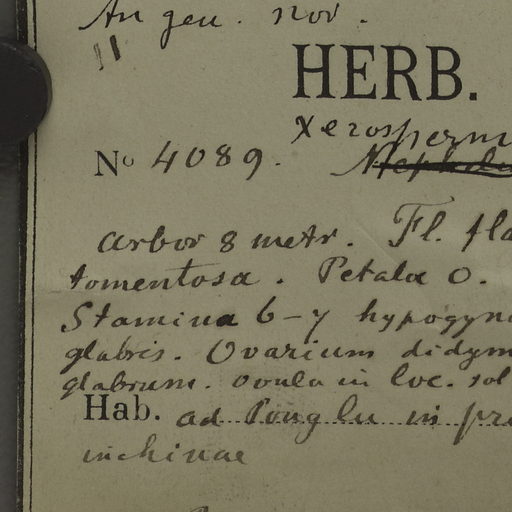 An gen. nov.
11
HERB.
Xerosperm
No 4089. Nephel
arbor 8 metr. Fl. fla
tomentosa. Petala 0.
Stamina 6-7 hypogyn
glabris. Ovarium didym
glabrum. ovula in loc. sol
Hab. ad Pong lu in pr
inchinae